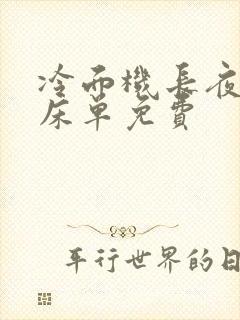 冷面機長夜
床單免費
平行世界的日